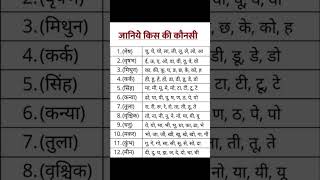 जानिये किस की कौनसी
1. (मेष) चू, चे, चो, ला, ली, लू, ले, लो, आ
2. (वृषभ) ई, ऊ, ए, ओ, वा, वी, वू, वे, वो
3. (मिथुन) का, की, कू, घ, छ, के, को, ह
4. (कर्क) ही, हू, हे, हो, डा, डी, डू, डे, डो
5. (सिंह) मा, मी, मू, मे, मो, टा, टी, टू, टे
6. (कन्या) पा, पी, पू, ष, ण, ठ, पे, पो
7. (तुला) रा, री, रू, रे, रो, ता, ती, तू, ते
8. (वृश्चिक) तो, ना, नी, नू, ने, नो, या, यी, यू
9. (धनु) ये, यो, भा, भी, भू, भे
10. (मकर) भो, जा, जी, खी, खू, खे, खो, गा, गी
11. (कुंभ) गू, गे, गो, सा, सी, सू, से, सो, दा
12. (मीन) दी, दू, थ, झ, दे, दो, चा, ची
3.(मिथुन)
4.(कर्क)
5.(सिंह)
6.(कन्या)
7.(तुला)
8.(वृश्चिक)
छ, के, को, ह
डी, डू, डे, डो
टा, टी, टू, टे
ण, ठ, पे, पो
ता, ती, तू, ते
नो, या, यी, यू